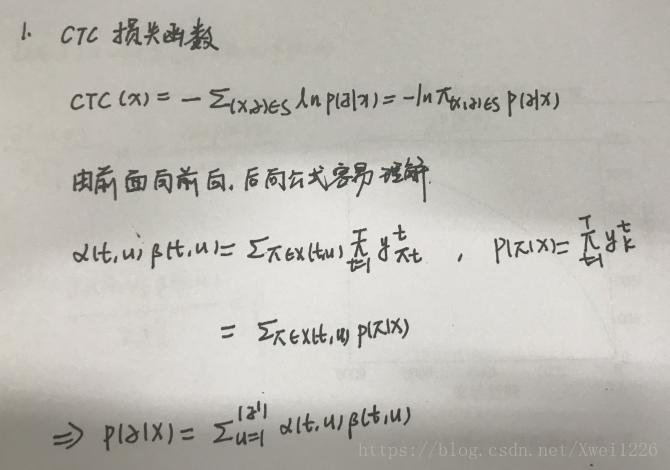 1. CTC 损失函数
CTC(x) = - Σ(x,z)∈S ln p(z|x) = -ln π(x,z)∈S p(z|x)
由前面向前向、后向公式容易理解.
α(t,u) β(t,u) = Σπ∈X(t,u) ∏ᵀₜ₌₁ yᵗπt , p(π|x) = ∏ᵀₜ₌₁ yᵗₖ
= Σπ∈X(t,u) p(π|x)
⇒ p(z|x) = Σ|z'|u=1 α(t,u) β(t,u)
https://blog.csdn.net/Xwei1226